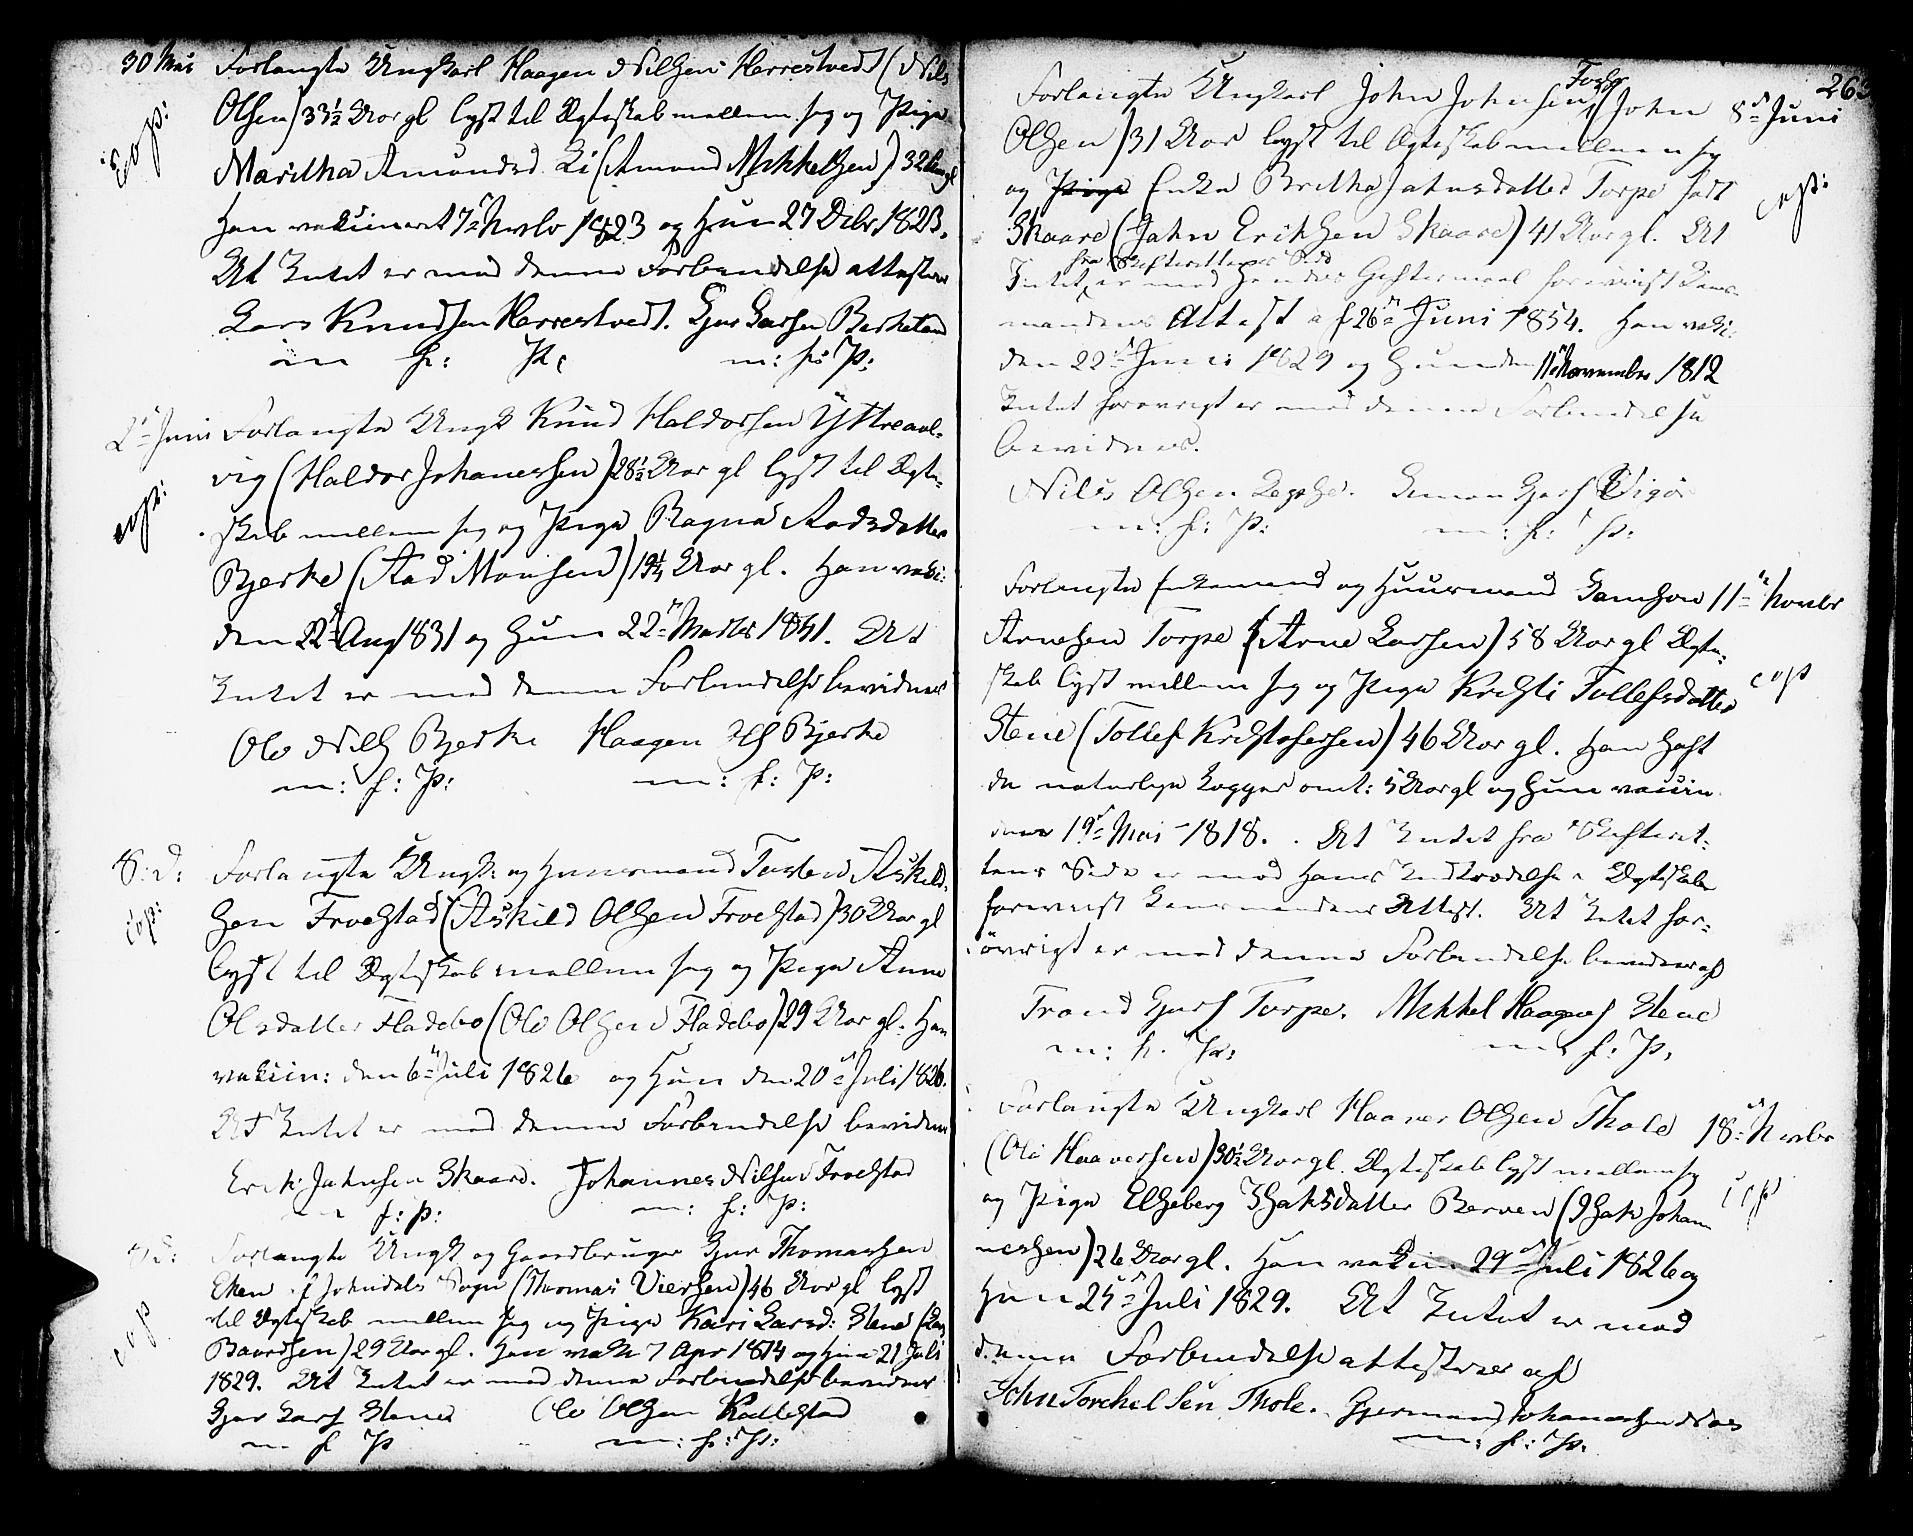 30 Mai Forlangte Ungkarl Haagen Nilsen Herrestvedt (Nils
Olsen) 33½ Aar gl lyst til Ægteskab mellem sig og Pige
cop:
Maritha Amundsd. Li (Amund Mikkelsen) 32 Aar gl
Han vaksineret 7de Novbr 1823 og Hun 27 Decbr 1823.
At Intet er mod denne Forbindelse attesterer
Lars Knudsen Herrestvedt. Gjur Larsen Berketun
m: f: P: m: f: P:
2de Juni Forlangte Ungk Knud Haldorsen Yttreaal-
vig (Haldor Johanessen) 28½ Aar gl lyst til Ægte-
cop:
skab mellem sig og Pige Ragna Aadsdatter
Bjerke (Aad Monsen) 19¼ Aar gl. Han vaksi:
den 22de Aug 1831 og Hun 22de Marts 1841. At
Intet er mod denne Forbindelse bevidner
Ole Nils Bjerke Haagen Bjerke
m: f: P: m: f: P:
8: D: Forlangte Ungk: og Huusmand Torsten Askild-
cop:
sen Froestad (Askild Olsen Froestad) 30 Aar gl
lyst til Ægteskab mellem sig og Pige Anne
Olsdatter Fladebo (Ole Olsen Fladebo) 29 Aar gl. Han
vaksin: den 6te Juli 1826 og Hun den 20de Juli 1826.
At Intet er mod denne Forbindelse bevidner
Erik Jahnsen Skaare. Johannes Nilsen Froestad
m: f: P: m: f: P:
Forlangte Ungk og Gaardbruger Gjur Thomassen
Eken af Jondals Sogn (Thomas Viersen) 46 Aar gl lyst
til Ægteskab mellem sig og Pige Kari Larsd: Stene (Lars
cop
Baardsen) 29 Aar gl. Han vaks 7 Apr 1814 og Hun 21 Juli
1829. At Intet er mod denne Forbindelse bevidner
Gjur Lars Stene Ole Olsen Kollestad
m f P m: f: P:
263
Forlangte Ungkarl John Johnsen Torpe (John 8de Juni
Olsen) 31 Aar lyst til Ægteskab mellem sig
og Pige Enke Britha Jahnsdatter Torpe født
cop:
Skaare (Jahn Eriksen Skaare) 41 Aar gl. At
fra Skifterettens Side
Intet er mod hendes Giftermaal forevist Lens-
mandens Attest af 26de Juni 1854. Han vaksi:
den 22de Juni 1829 og Hun den 11te November 1812
Intet forøvrigt er mod denne Forbindelse
bevidnes.
Nils Olsen Simon Gjers Vigør
m: f: P: m: f: P:
Forlangte Enkemand og Huusmand Samson 11te Novbr
Arnesen Torpe (Arne Larsen) 58 Aar gl Ægte-
skab lyst mellem sig og Pige Kristi Tollefsdatter cop
Stene (Tollef Kristofersen) 46 Aar gl. Han haft
de naturlige Kopper omt: 5 Aar gl og Hun vaksin
den 19de Mai 1818. At Intet fra Skifteret-
tens Side er mod Hans Indtrædelse i Ægteskab
forevist Lensmandens Attest. At Intet for-
øvrigt er mod denne Forbindelse bevidner af
Trond Gjers Torpe. Mikkel Haagens Stene
m: f: P: m: f: P:
Forlangte Ungkarl Haaver Olsen Thole 18de Novbr
(Ole Haaversen) 30½ Aar gl. Ægteskab lyst mellem sig
og Pige Elseberg Isaksdatter Berven (Isak Johan- cop
nessen) 26 Aar gl. Han vaksin 29de Juli 1826 og
Hun 25de Juli 1829. At Intet er mod
denne Forbindelse attesterer af
John Torchelsen Thole. Gjermund Johannessen Næs
m: f: P: